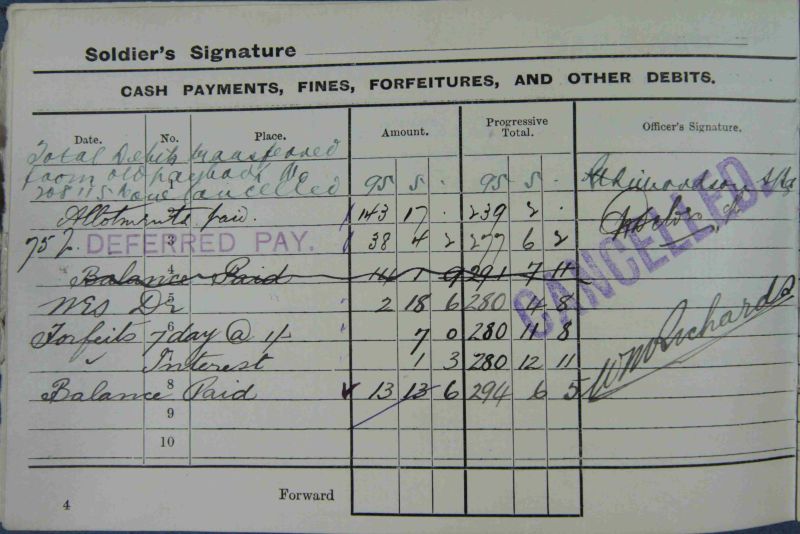 Soldier's Signature
CASH PAYMENTS, FINES, FORFEITURES, AND OTHER DEBITS.
Date. No. Place. Amount. Progressive Total. Officer's Signature.
Total Debits transferred
from old paybook No 1 95 5 . 95 5 .
cancelled
Allotments paid. 143 17 . 239 2 .
75 DEFERRED PAY. 3 38 4 2 277 6 2
Balance Paid 4 14 1 9 291 7 11
CANCELLED.
5 2 18 6 280 4 8
Forfeits 6 7 day @ 1/ 7 0 280 11 8
7 Interest 1 3 280 12 11
Balance 8 Paid 13 13 6 294 6 5
9
10
Forward
4